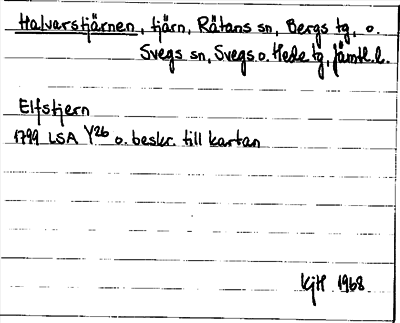 Halvarstjärnen, tjärn, Rätans sn, Bergs tg, o.
Svegs sn, Svegs o. Hede tg, Jämtl. l.
Elfstjern
1799 LSA Y26 o. beskr. till kartan
KjH 1968